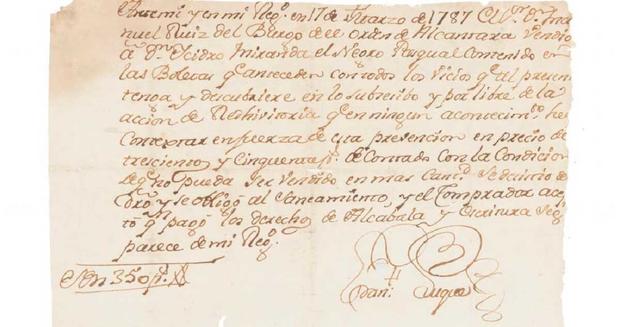 Ante mi y en mi Reg.º en 17 de Marzo de 1787 El S.ᵒʳ D.ⁿ Ma
nuel Ruiz del Burgo de el Orden de Alcantara Vendio
a D.ⁿ Isidro Miranda el Negro Pasqual Contenido en
las Boletas q.ᵉ anteceden con todos los Vicios q.ᵉ al presen
tenga y descubriere en lo subcesibo y por libre de la
accion de Redhivitoria q.ᵉ en ningun acontecim.ᵗᵒ he
Contestar en fuerza de esta prevencion en precio de
trescientos y Cinquenta p.ˢ de Contado con la Condicion
de q.ᵉ no pueda ser Vendido en mas Cant.ᵈ
y se obligó al Saneamiento, y el Comprador ace
tó q.ᵉ pagó los derechos de Alcabala y Escritura Seg.ⁿ
parece de mi Reg.º
Son 350 p.ˢ
Duque